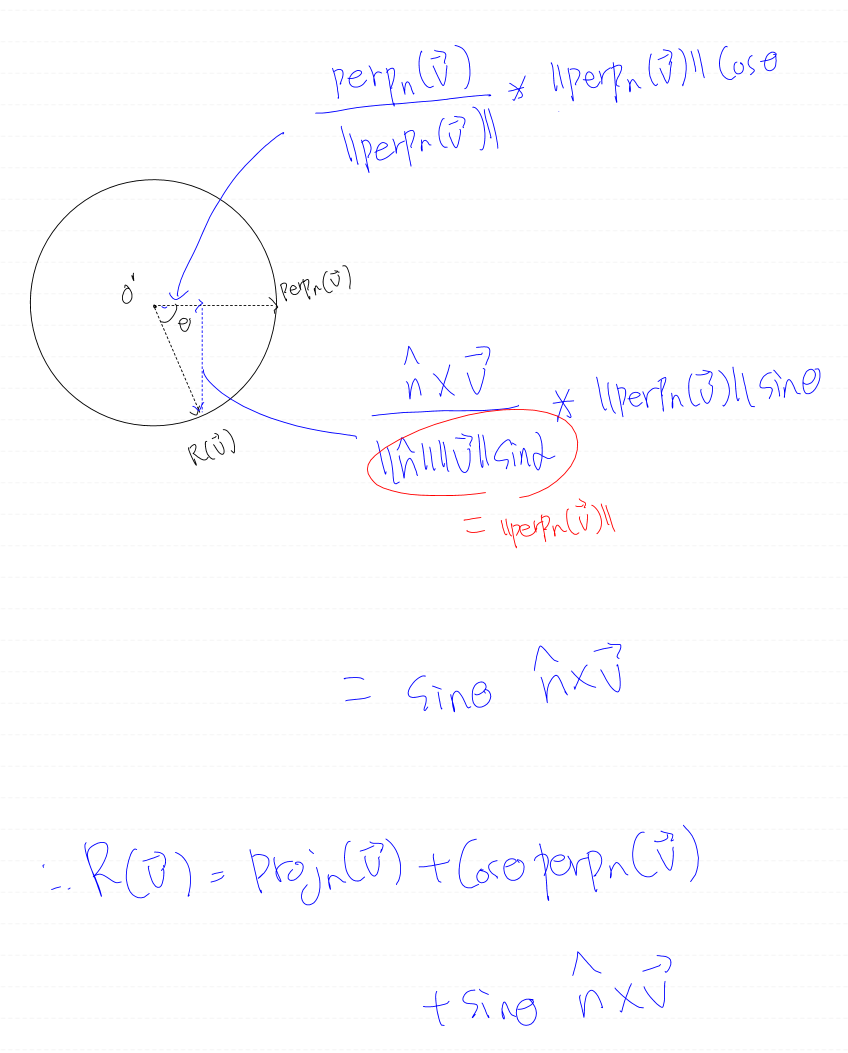 perpₙ(v⃗)
‖perpₙ(v⃗)‖
* ‖perpₙ(v⃗)‖ Cosθ
O'
θ
perpₙ(v⃗)
R(v⃗)
n̂ × v⃗
‖n̂‖‖v⃗‖ sinα
* ‖perpₙ(v⃗)‖ sinθ
= ‖perpₙ(v⃗)‖
= sinθ n̂×v⃗
∴ R(v⃗) = projₙ(v⃗) + Cosθ perpₙ(v⃗)
+ sinθ n̂×v⃗